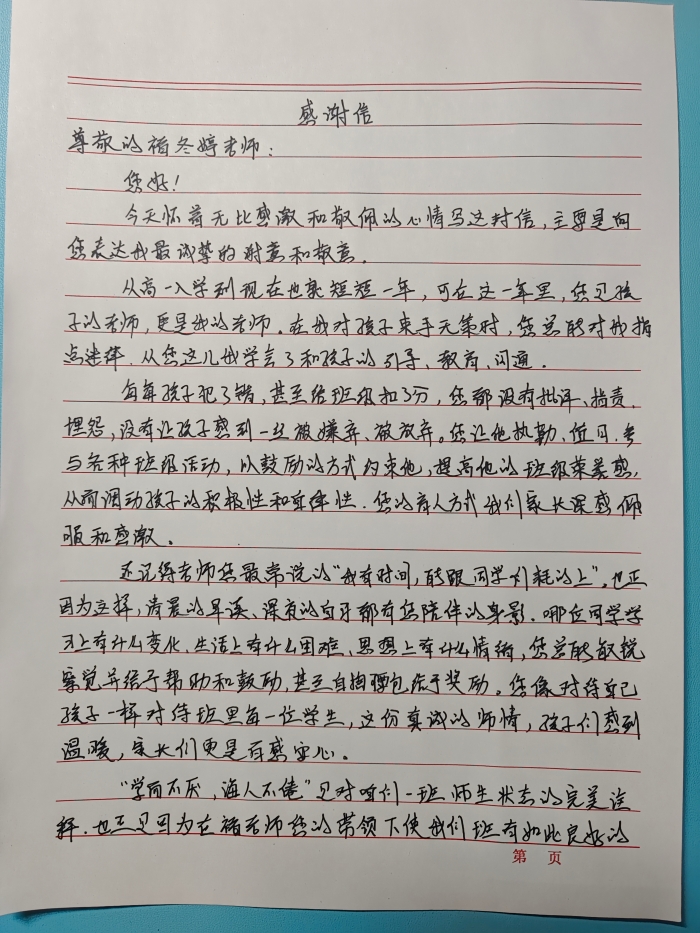 感谢信
尊敬的褚冬婷老师：
您好！
今天怀着无比感激和敬佩的心情写这封信，主要是向
您表达我最诚挚的谢意和敬意．
从高一入学到现在也就短短一年，可在这一年里，您是孩
子的老师，更是我的老师．在我对孩子束手无策时，您总能对我指
点迷津．从您这儿我学会了和孩子的引导、教育、沟通．
每每孩子犯了错，甚至给班级扣了分，您都没有批评、指责、
埋怨，没有让孩子感到一丝被嫌弃、被放弃。您让他执勤，值日，参
与各种班级活动，以鼓励的方式约束他，提高他的班级荣誉感，
从而调动孩子的积极性和自律性．您的育人方式我们家长深感佩
服和感激。
还记得老师您最常说的“我有时间，能跟同学们耗的上”，也正
因为这样，清晨的早读、深夜的自习都有您陪伴的身影．哪位同学学
习上有什么变化、生活上有什么困难、思想上有什么情绪，您总能敏锐
察觉并给予帮助和鼓励，甚至自掏腰包给予奖励。您像对待自己
孩子一样对待班里每一位学生，这份真诚的师情，孩子们感到
温暖，家长们更是百感安心。
“学而不厌，诲人不倦”是对咱们一班师生状态的完美诠
释．也正是因为在褚老师您的带领下使我们班有如此良好的
第 页